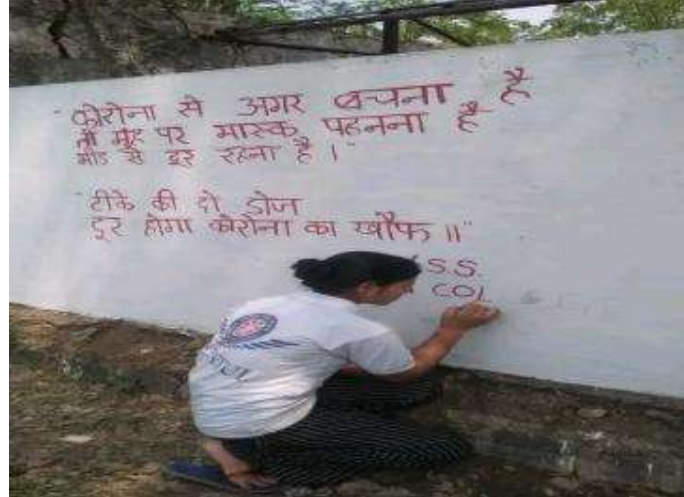 "कोरोना से अगर बचना है
तो मुंह पर मास्क पहनना है
भीड से दूर रहना है ।"
"टीके की दो डोज
दूर होगा कोरोना का खौफ ॥"
S.S.
COL